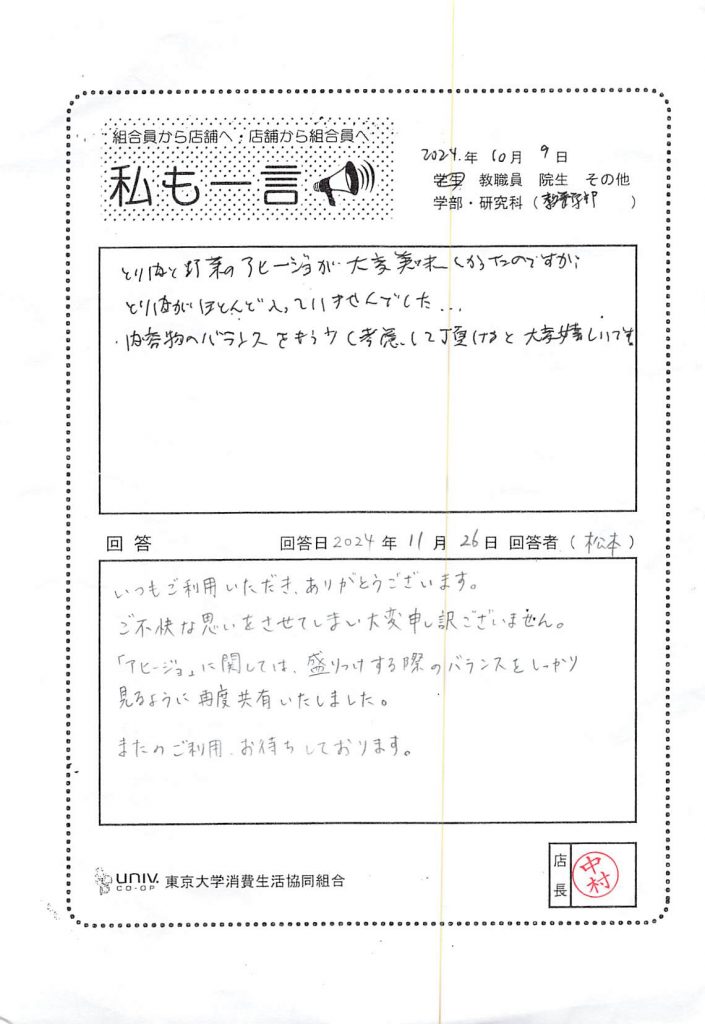 組合員から店舗へ・店舗から組合員へ
私も一言
2024.年 10月 9日
学生 教職員 院生 その他
学部・研究科（教養学部 ）
とり肉と野菜のアヒージョが大変美味しかったのですが、
とり肉がほとんど入っていませんでした...
内容物のバランスをもう少し考慮して頂けると大変嬉しいです
回答 回答日2024年11月26日 回答者（松本）
いつもご利用いただき、ありがとうございます。
ご不快な思いをさせてしまい大変申し訳ございません。
「アヒージョ」に関しては、盛りつけする際のバランスをしっかり
見るように再度共有いたしました。
またのご利用、お待ちしております。
UNIV. CO-OP 東京大学消費生活協同組合
店長 中村